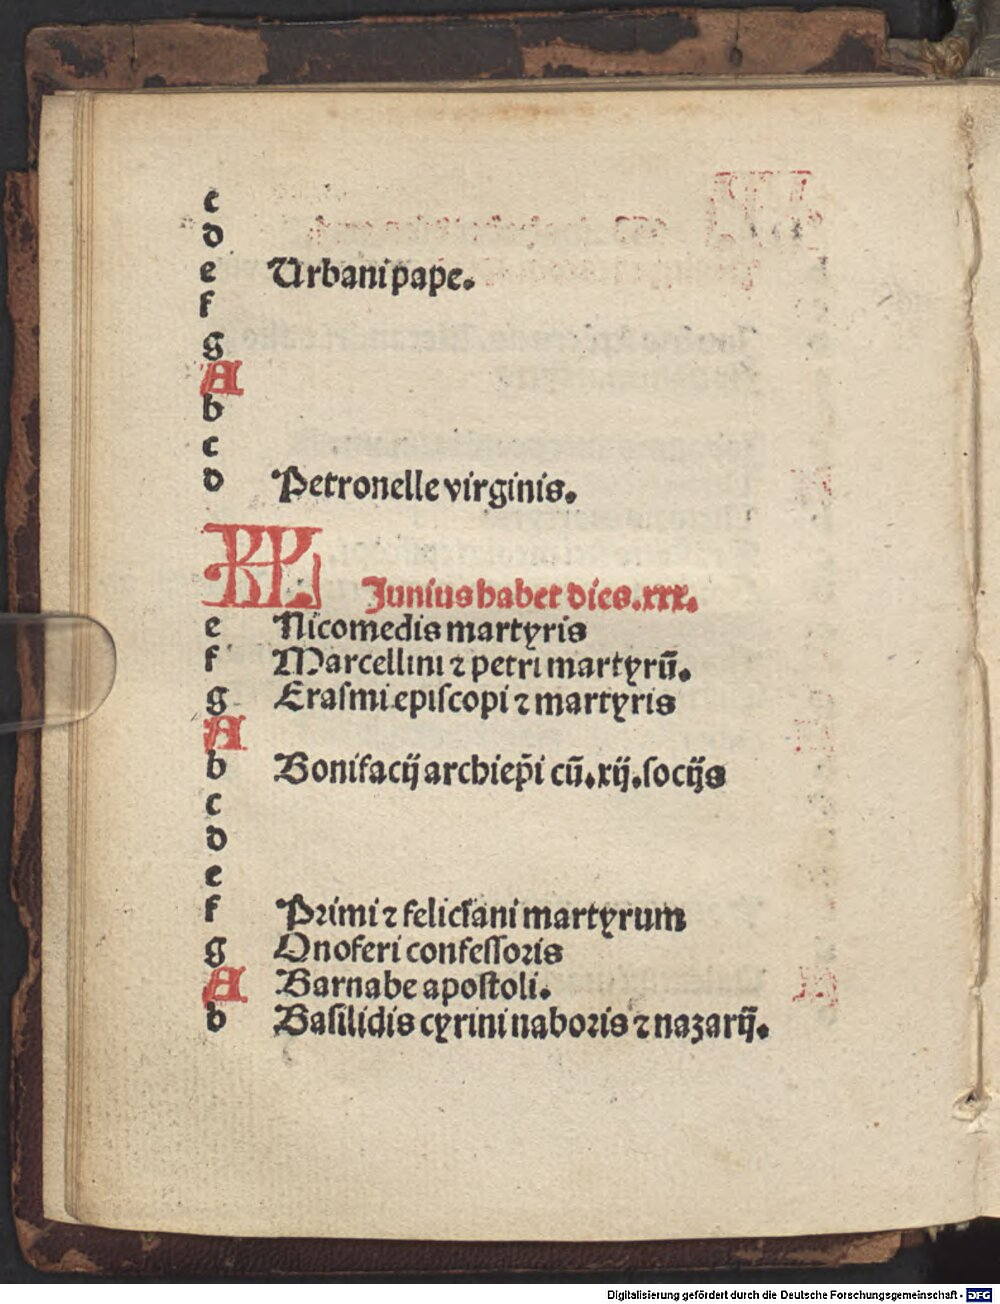 c
d
e Urbani pape.
f
g
A
b
c
d Petronelle virginis.
KL Junius habet dies.xxx.
e Nicomedis martyris
f Marcellini ⁊ petri martyrū.
g Erasmi episcopi ⁊ martyris
A
b Bonifacij archiep̄i cū.xij.socijs
c
d
e
f Primi ⁊ feliciani martyrum
g Onoferi confessoris
A Barnabe apostoli.
b Basilidis cyrini naboris ⁊ nazarij.
Digitalisierung gefördert durch die Deutsche Forschungsgemeinschaft - DFG